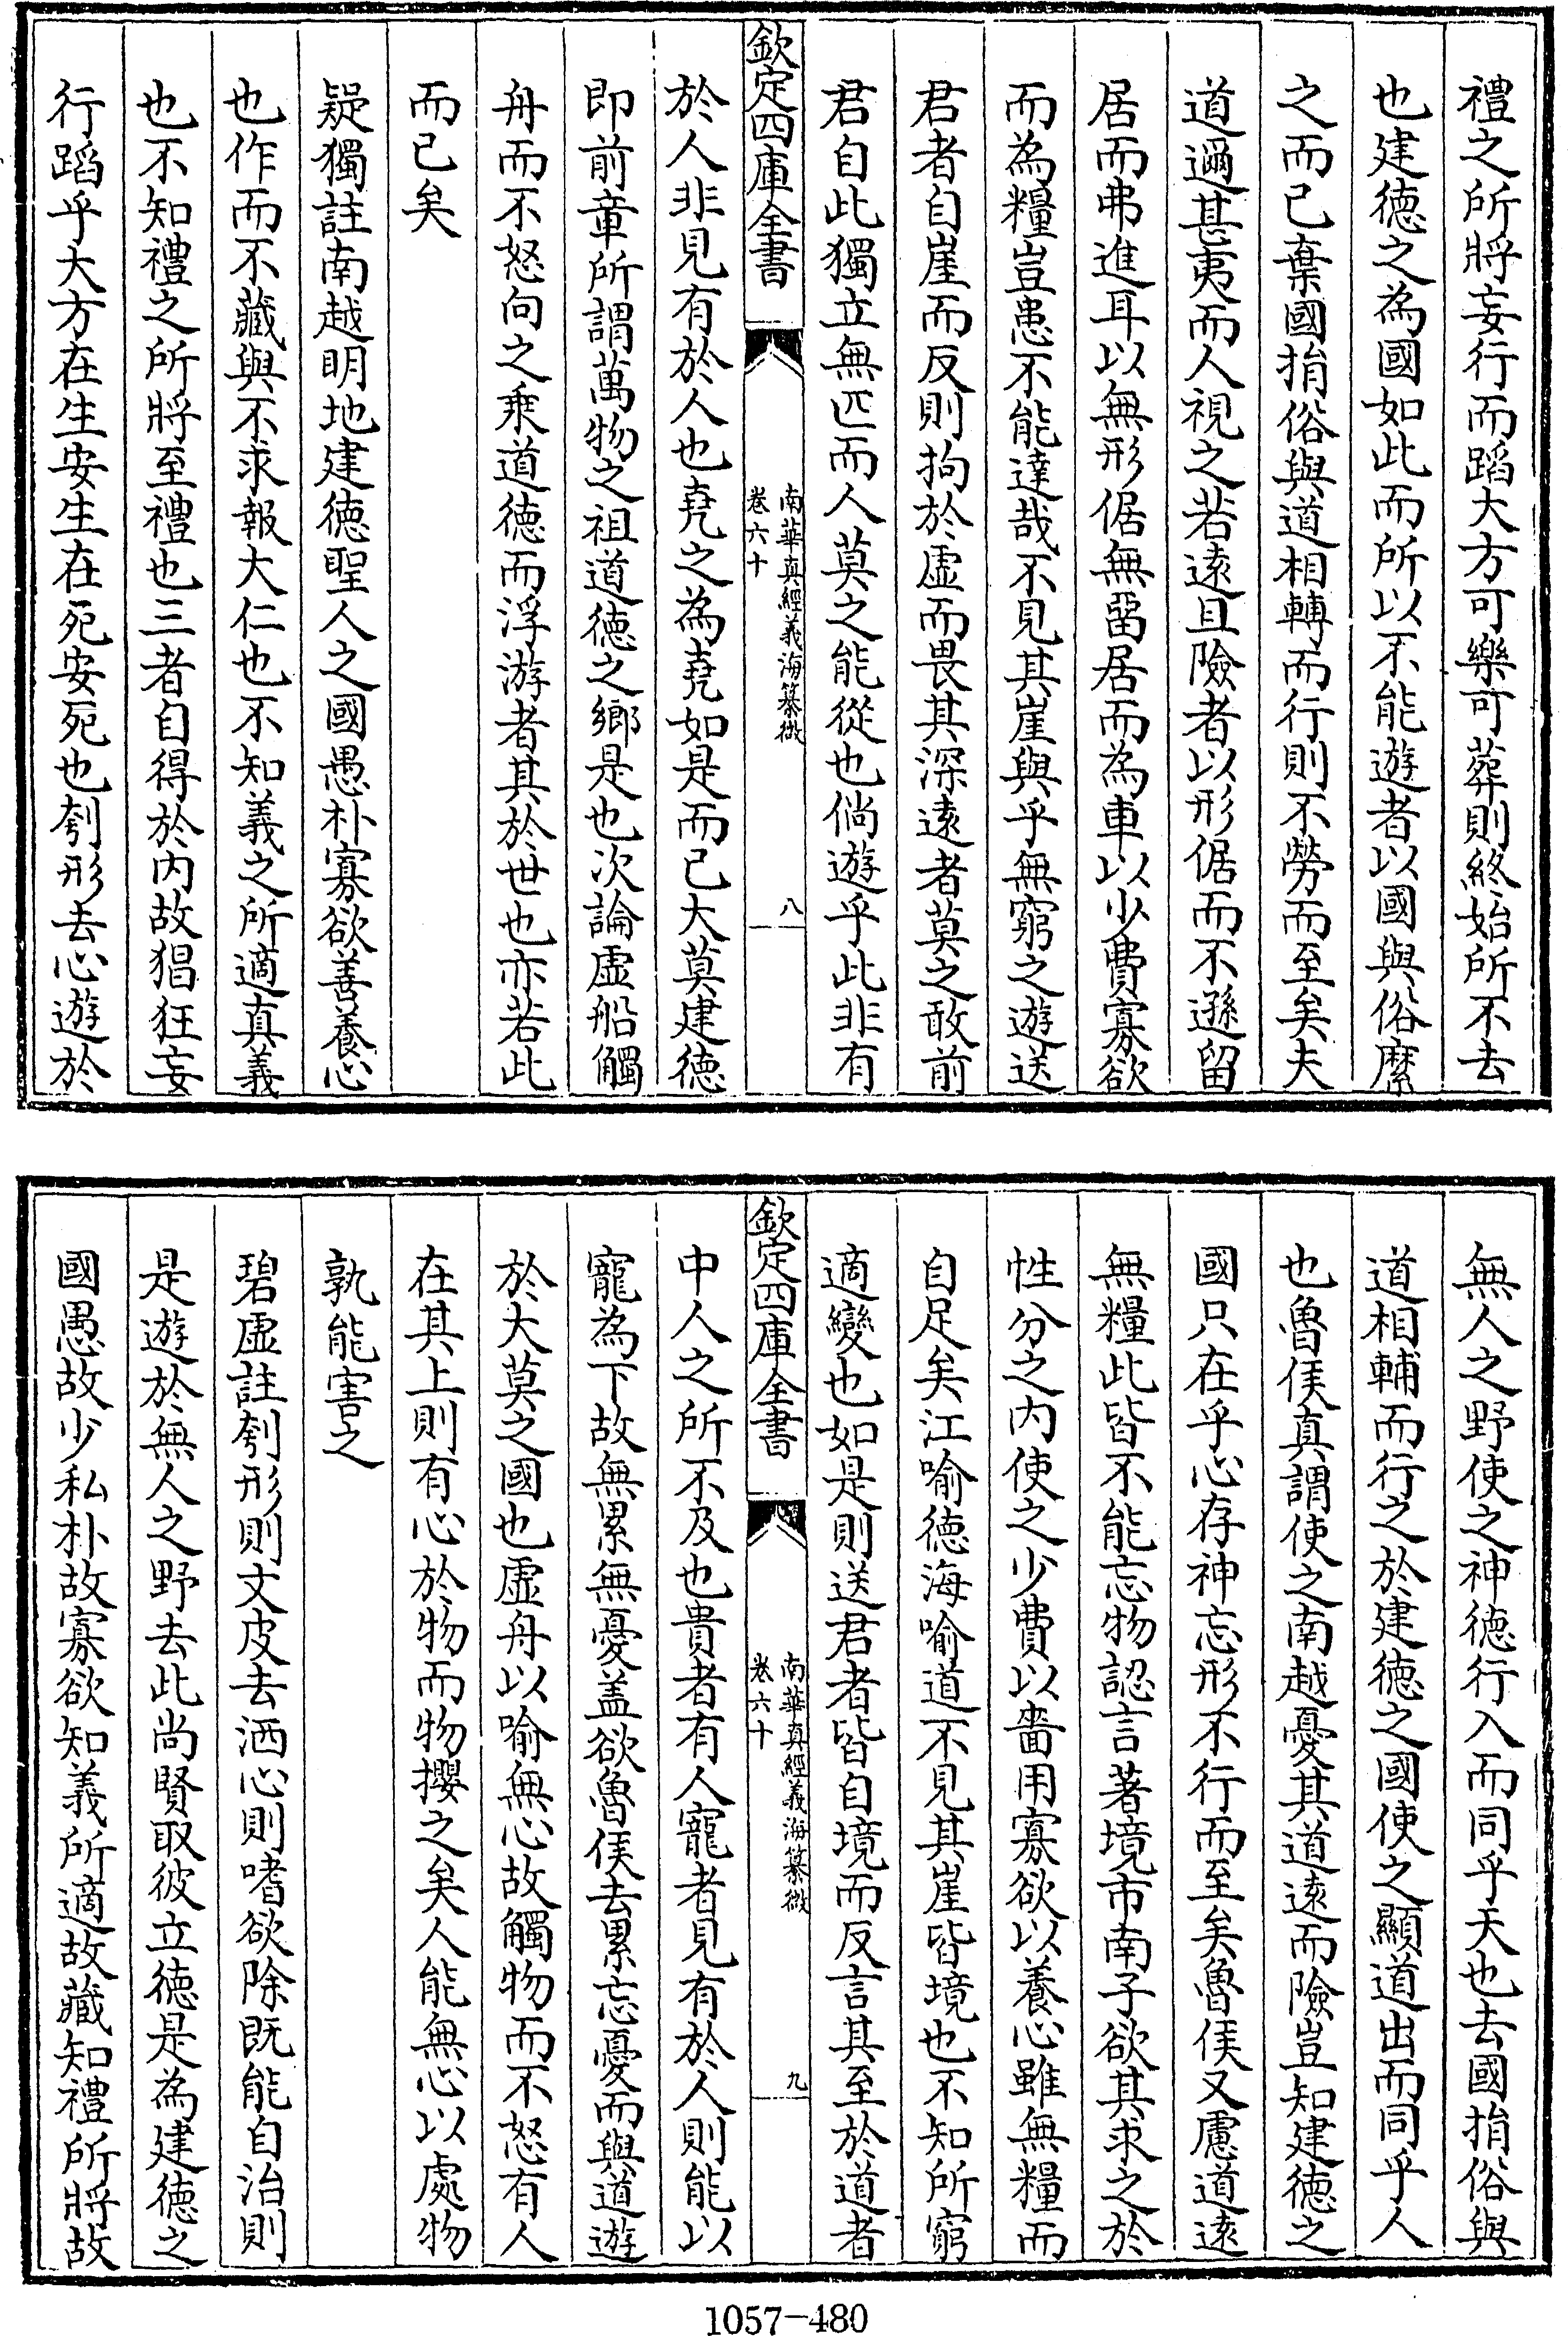 禮之所將妄行而蹈大方可樂可葬則終始所不去
也建徳之為國如此而所以不能遊者以國與俗縻
之而已棄國捐俗與道相轉而行則不勞而至矣夫
道邇甚夷而人視之若逺且險者以形倨而不遜留
居而弗進耳以無形倨無留居而為車以少費寡欲
而為糧豈患不能達哉不見其崖與乎無窮之遊送
君者自崖而反則拘於虛而畏其深逺者莫之敢前
君自此獨立無匹而人莫之能從也倘遊乎此非有
欽定四庫全書
南華真經義海纂微
卷六十
八
於人非見有於人也堯之為堯如是而已大莫建徳
即前章所謂萬物之祖道徳之鄉是也次論虛船觸
舟而不怒向之乘道徳而浮游者其於世也亦若此
而已矣
疑獨註南越明地建徳聖人之國愚朴寡欲善養心
也作而不藏與不求報大仁也不知義之所適真義
也不知禮之所將至禮也三者自得於內故猖狂妄
行蹈乎大方在生安生在死安死也刳形去心遊於
無人之野使之神徳行入而同乎天也去國捐俗與
道相輔而行之於建徳之國使之顯道出而同乎人
也魯侯真謂使之南越憂其道逺而險豈知建徳之
國只在乎心存神忘形不行而至矣魯侯又慮道逺
無糧此皆不能忘物認言著境市南子欲其求之於
性分之內使之少費以嗇用寡欲以養心雖無糧而
自足矣江喻徳海喻道不見其崖皆境也不知所窮
適變也如是則送君者皆自境而反言其至於道者
欽定四庫全書
南華真經義海纂微
卷六十
九
中人之所不及也貴者有人寵者見有於人則能以
寵為下故無累無憂盖欲魯侯去累忘憂而與道遊
於大莫之國也虛舟以喻無心故觸物而不怒有人
在其上則有心於物而物攖之矣人能無心以處物
孰能害之
碧虛註刳形則文皮去洒心則嗜欲除既能自治則
是遊於無人之野去此尚賢取彼立徳是為建徳之
國愚故少私朴故寡欲知義所適故藏知禮所將故
1057-480